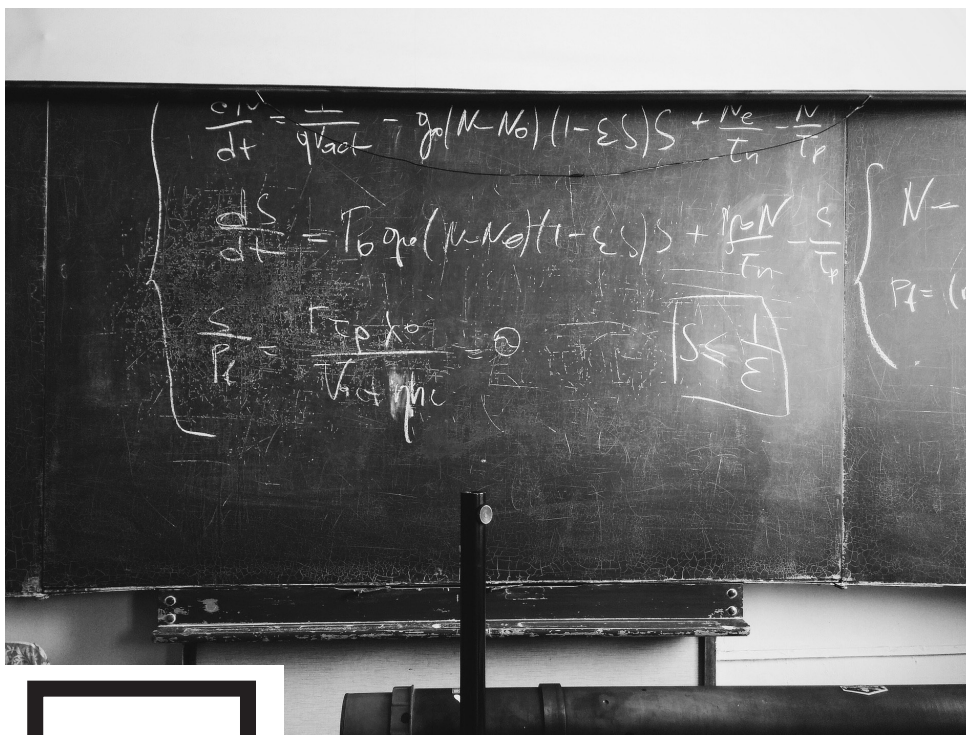 dN/dt = I/qVact - g0(N-N0)(1-εS)S + Ne/τn - N/τp
dS/dt = Γ0 g0(N-N0)(1-εS)S + N/τn - S/τp
S/Pf = Γτpλ0/Vact ηhc = ϑ
S ≤ 1/ε
N=
Pf = (